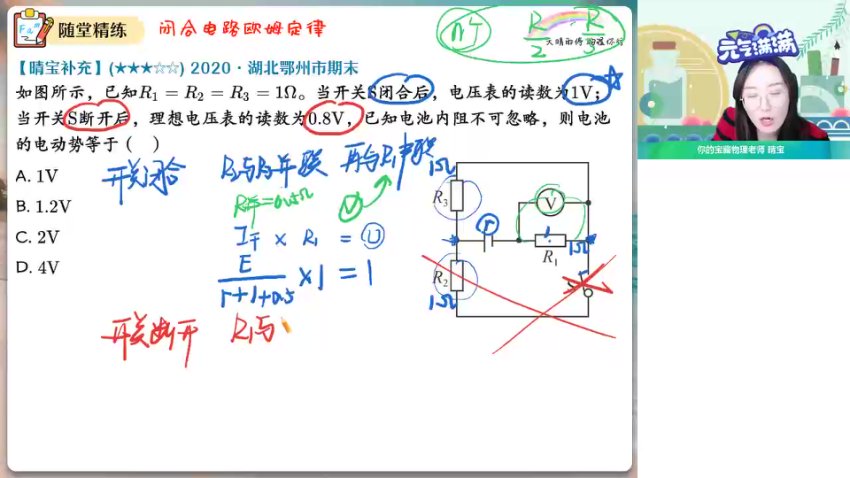 随堂精练 闭合电路欧姆定律
【晴宝补充】(★★★☆☆) 2020·湖北鄂州市期末
如图所示，已知R₁ = R₂ = R₃ = 1Ω。当开关S闭合后，电压表的读数为1V；
当开关S断开后，理想电压表的读数为0.8V，已知电池内阻不可忽略，则电池
的电动势等于（ ）
A. 1V
B. 1.2V
C. 2V
D. 4V
开关闭合
再与R₁串联
R并=0.5Ω
I干 × R₁ = U
E/(r+1+0.5) ×1 = 1
开关断开 R₁与
R/2 R/3
1Ω
R₃
V
r
1Ω
R₁
R₂
1Ω
S
元气满满
你的宝藏物理老师 晴宝